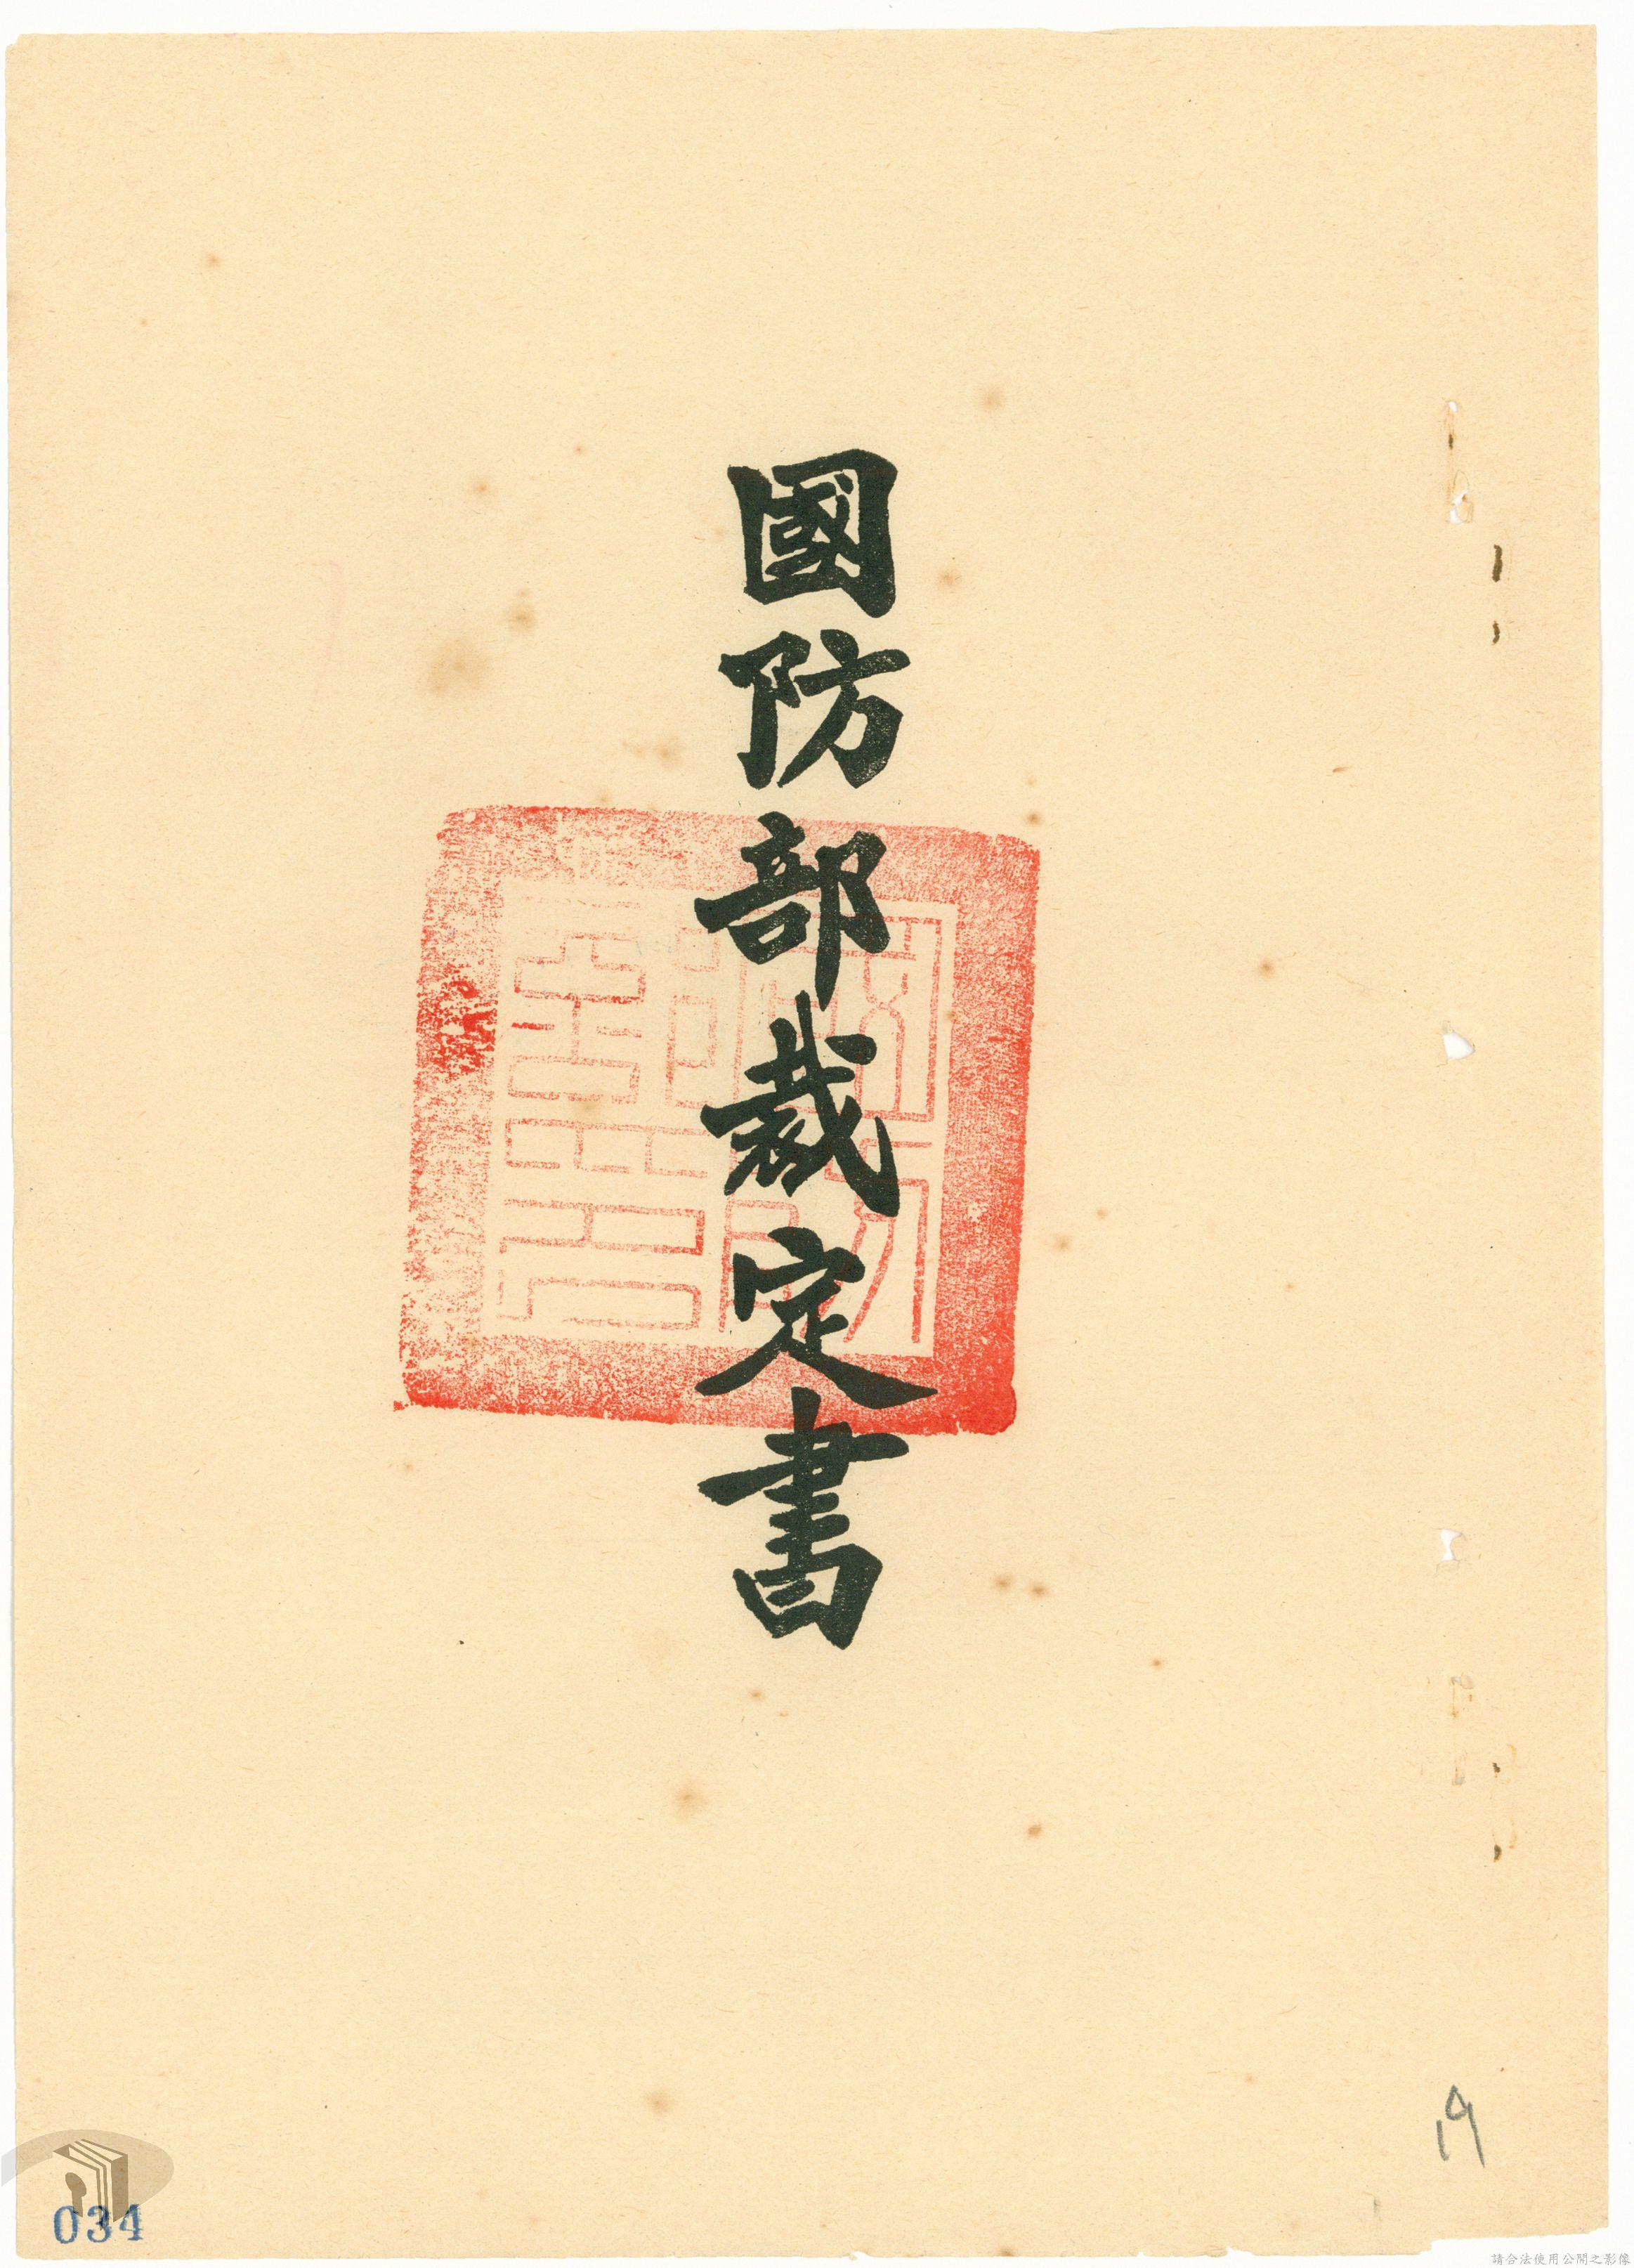 國防部裁定書
19
034
請合法使用公開之影像